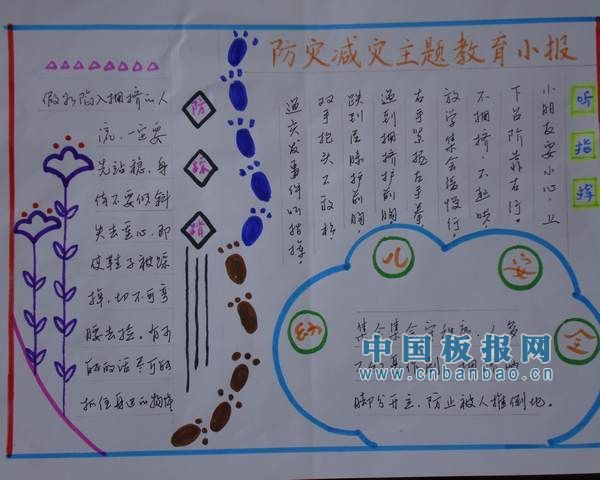 防灾减灾主题教育小报
听指挥
小朋友要小心,上
下台阶靠右行。
不拥挤、不起哄,
放学集会缓慢行。
右手紧握左手拳,
遇到拥挤护前胸,
跌到屈膝护前胸,
双手抱头不放松
遇突发事件听指挥。
防踩踏
假如陷入拥挤的人
流,一定要
先站稳,身
体不要倾斜
失去重心,即
使鞋子被踩
掉,切不可弯
腰去捡,有可
能的话尽可能
抓住身边的物体
幼儿安全
脚分开立,防止被人推倒地。
中国板报网
www.cnbanbao.cn